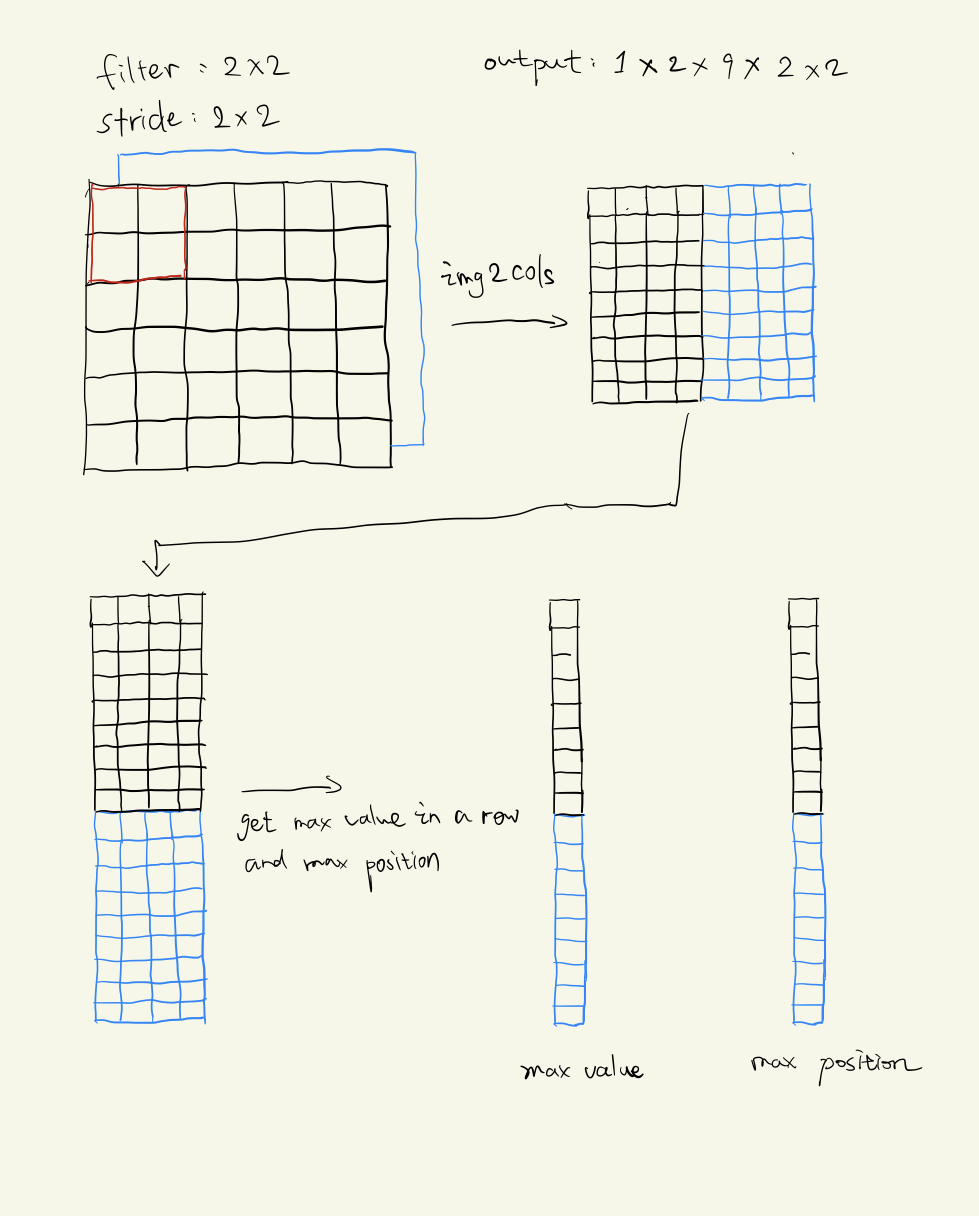 filter : 2×2
stride : 2×2
output : 1 × 2 × 9 × 2 × 2
img2cols
get max value in a row
and max position
max value
max position